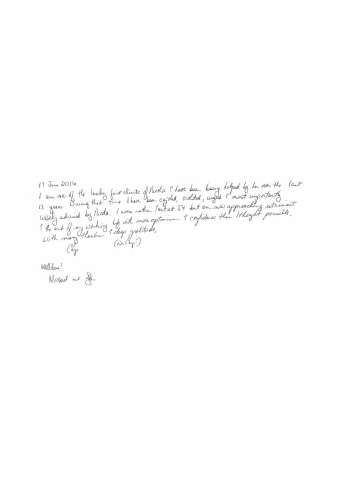 17 June 2016
I am one of the lucky first clients of Nicola & have been being helped by her over the last
13 years. During that time I have been cajoled, scolded, urged & most importantly
wisely advised by Nicola. I was rather lost at 54 but am now approaching retirement
& the end of my working life with more optimism & confidence than I thought possible.
With many thanks & deep gratitude,
Welldone!
Michael and